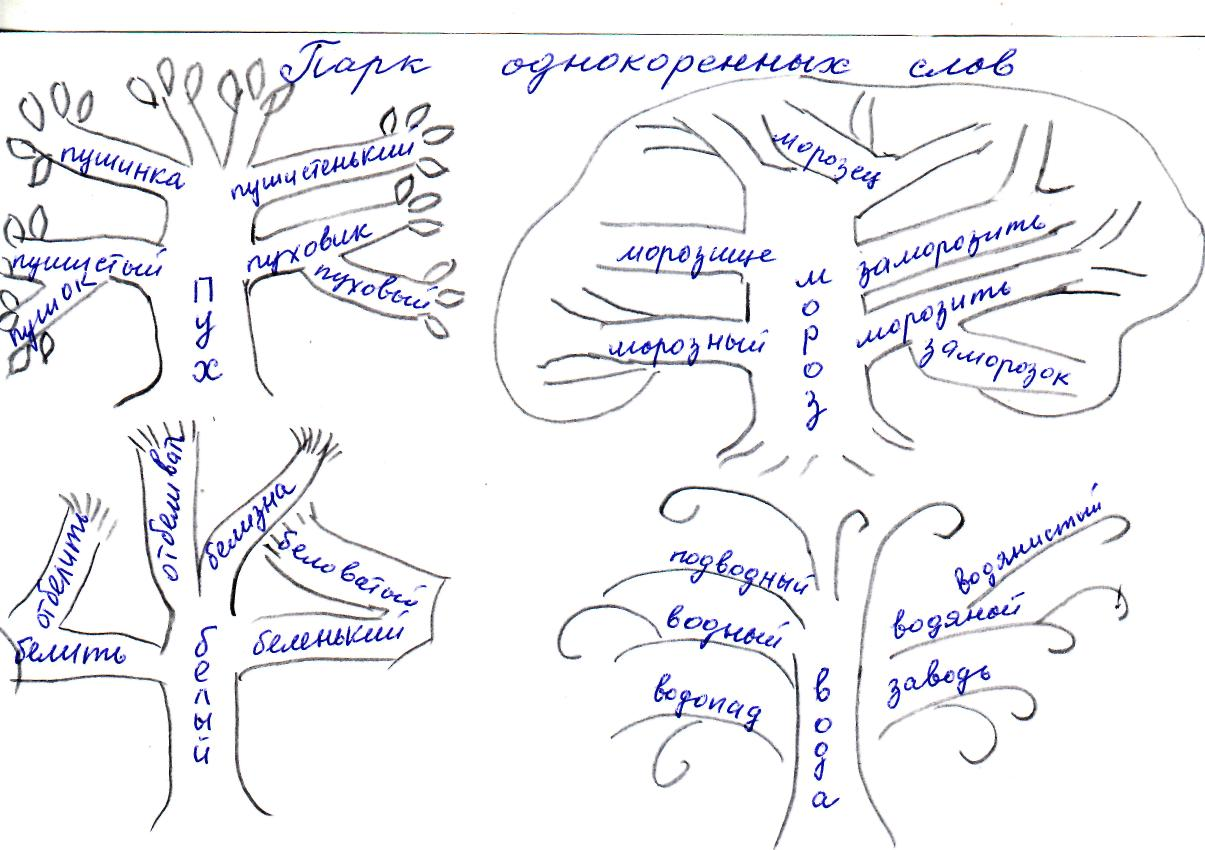 Парк однокоренных слов
пушинка
пушистенький
пушистый
пушок
пуховик
пуховый
Пух
морозец
морозище
заморозить
морозный
морозить
заморозок
мороз
отбеливат
отбелить
белизна
беловатый
белить
беленький
белый
подводный
водянистый
водный
водяной
водопад
заводь
вода